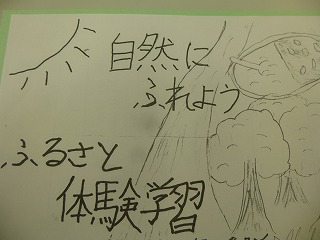 自然に
ふれよう
ふるさと
体験学習